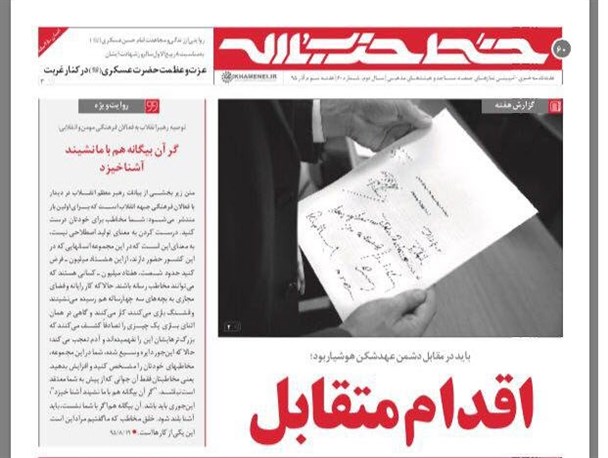 خط حزب‌الله
۶۰
روایتی از زندگی و مجاهدت امام حسن عسکری (ع)
به مناسبت ۸ ربیع الاول سالروز شهادت ایشان
عزت و عظمت حضرت عسکری (ع) در کنار غربت
KHAMENEI.IR
سال دوم، شماره ۶۰ | هفته سوم آذر ۹۵
گزارش هفته
باید در مقابل دشمن عهدشکن هوشیار بود؛
اقدام متقابل
روایت ویژه
توصیه رهبر انقلاب به فعالان فرهنگی مومن و انقلابی:
گر آن بیگانه هم با ما نشیند
آشنا خیزد
متن زیر بخشی از بیانات رهبر معظم انقلاب در دیدار
با فعالان فرهنگی جبهه انقلاب است که برای اولین بار
منتشر می‌شود: شما مخاطب برای خودتان درست
کنید. درست کردن به معنای تولید اصطلاحی نیست،
به معنای این است که در این مجموعه انسانهایی که در
این کشور حضور دارند، از این هشتاد میلیون ـ فرض
کنید حدود شصت، هفتاد میلیون ـ کسانی هستند که
می‌توانند مخاطب رسانه باشند. حالا که کار رایانه و فضای
مجازی به بچه‌های سه چهارساله هم رسیده می‌نشینند
و قشنگ بازی می‌کنند کار می‌کنند و گاهی در همان
اثنای بازی یک چیزی را تصادفاً کشف می‌کنند که
بزرگ‌ترهایشان این را نفهمیده‌اند و آدم تعجب می‌کند؛
حالا که این‌جور دایره وسیع شده، شما در این مجموعه،
مخاطبهای خودتان را مشخص کنید و افزایش بدهید.
یعنی مخاطبتان فقط آن جوانی که از پیش به شما معتقد
است نباشد. "گر آن بیگانه هم با ما نشیند آشنا خیزد"؛
این‌جوری باید باشد. آن بیگانه هم اگر با شما نشست، باید
آشنا بلند شود. خلق مخاطب که ما گفتیم مراد این است.
این یکی از کارها است. ۹۵/۸/۱۹